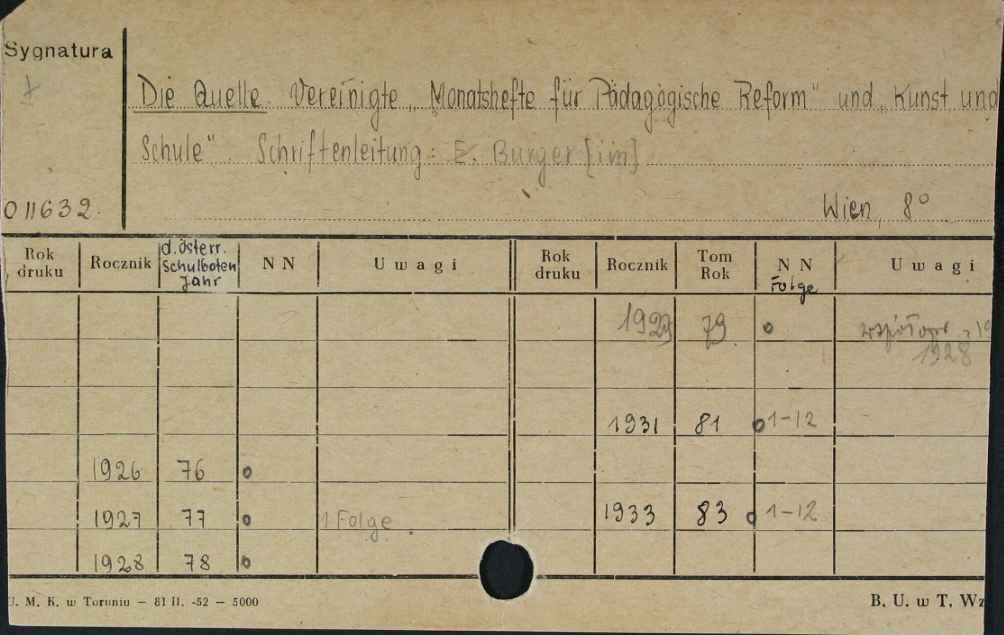 Sygnatura
Die Quelle. Vereinigte „Monatshefte für Pädagogische Reform" und „Kunst und
Schule". Schriftenleitung: E. Burger [i in]
011632.
Wien, 8°
Rok druku Rocznik d. österr. Schulboten Jahr N N Uwagi Rok druku Rocznik Tom Rok N N Folge Uwagi
1929 79 o
1928
1931 81 o 1-12
1926 76 o
1927 77 o 1 Folge. 1933 83 o 1-12
1928 78 o
U. M. K. w Toruniu — 81 II. -52 — 5000
B. U. w T. Wz